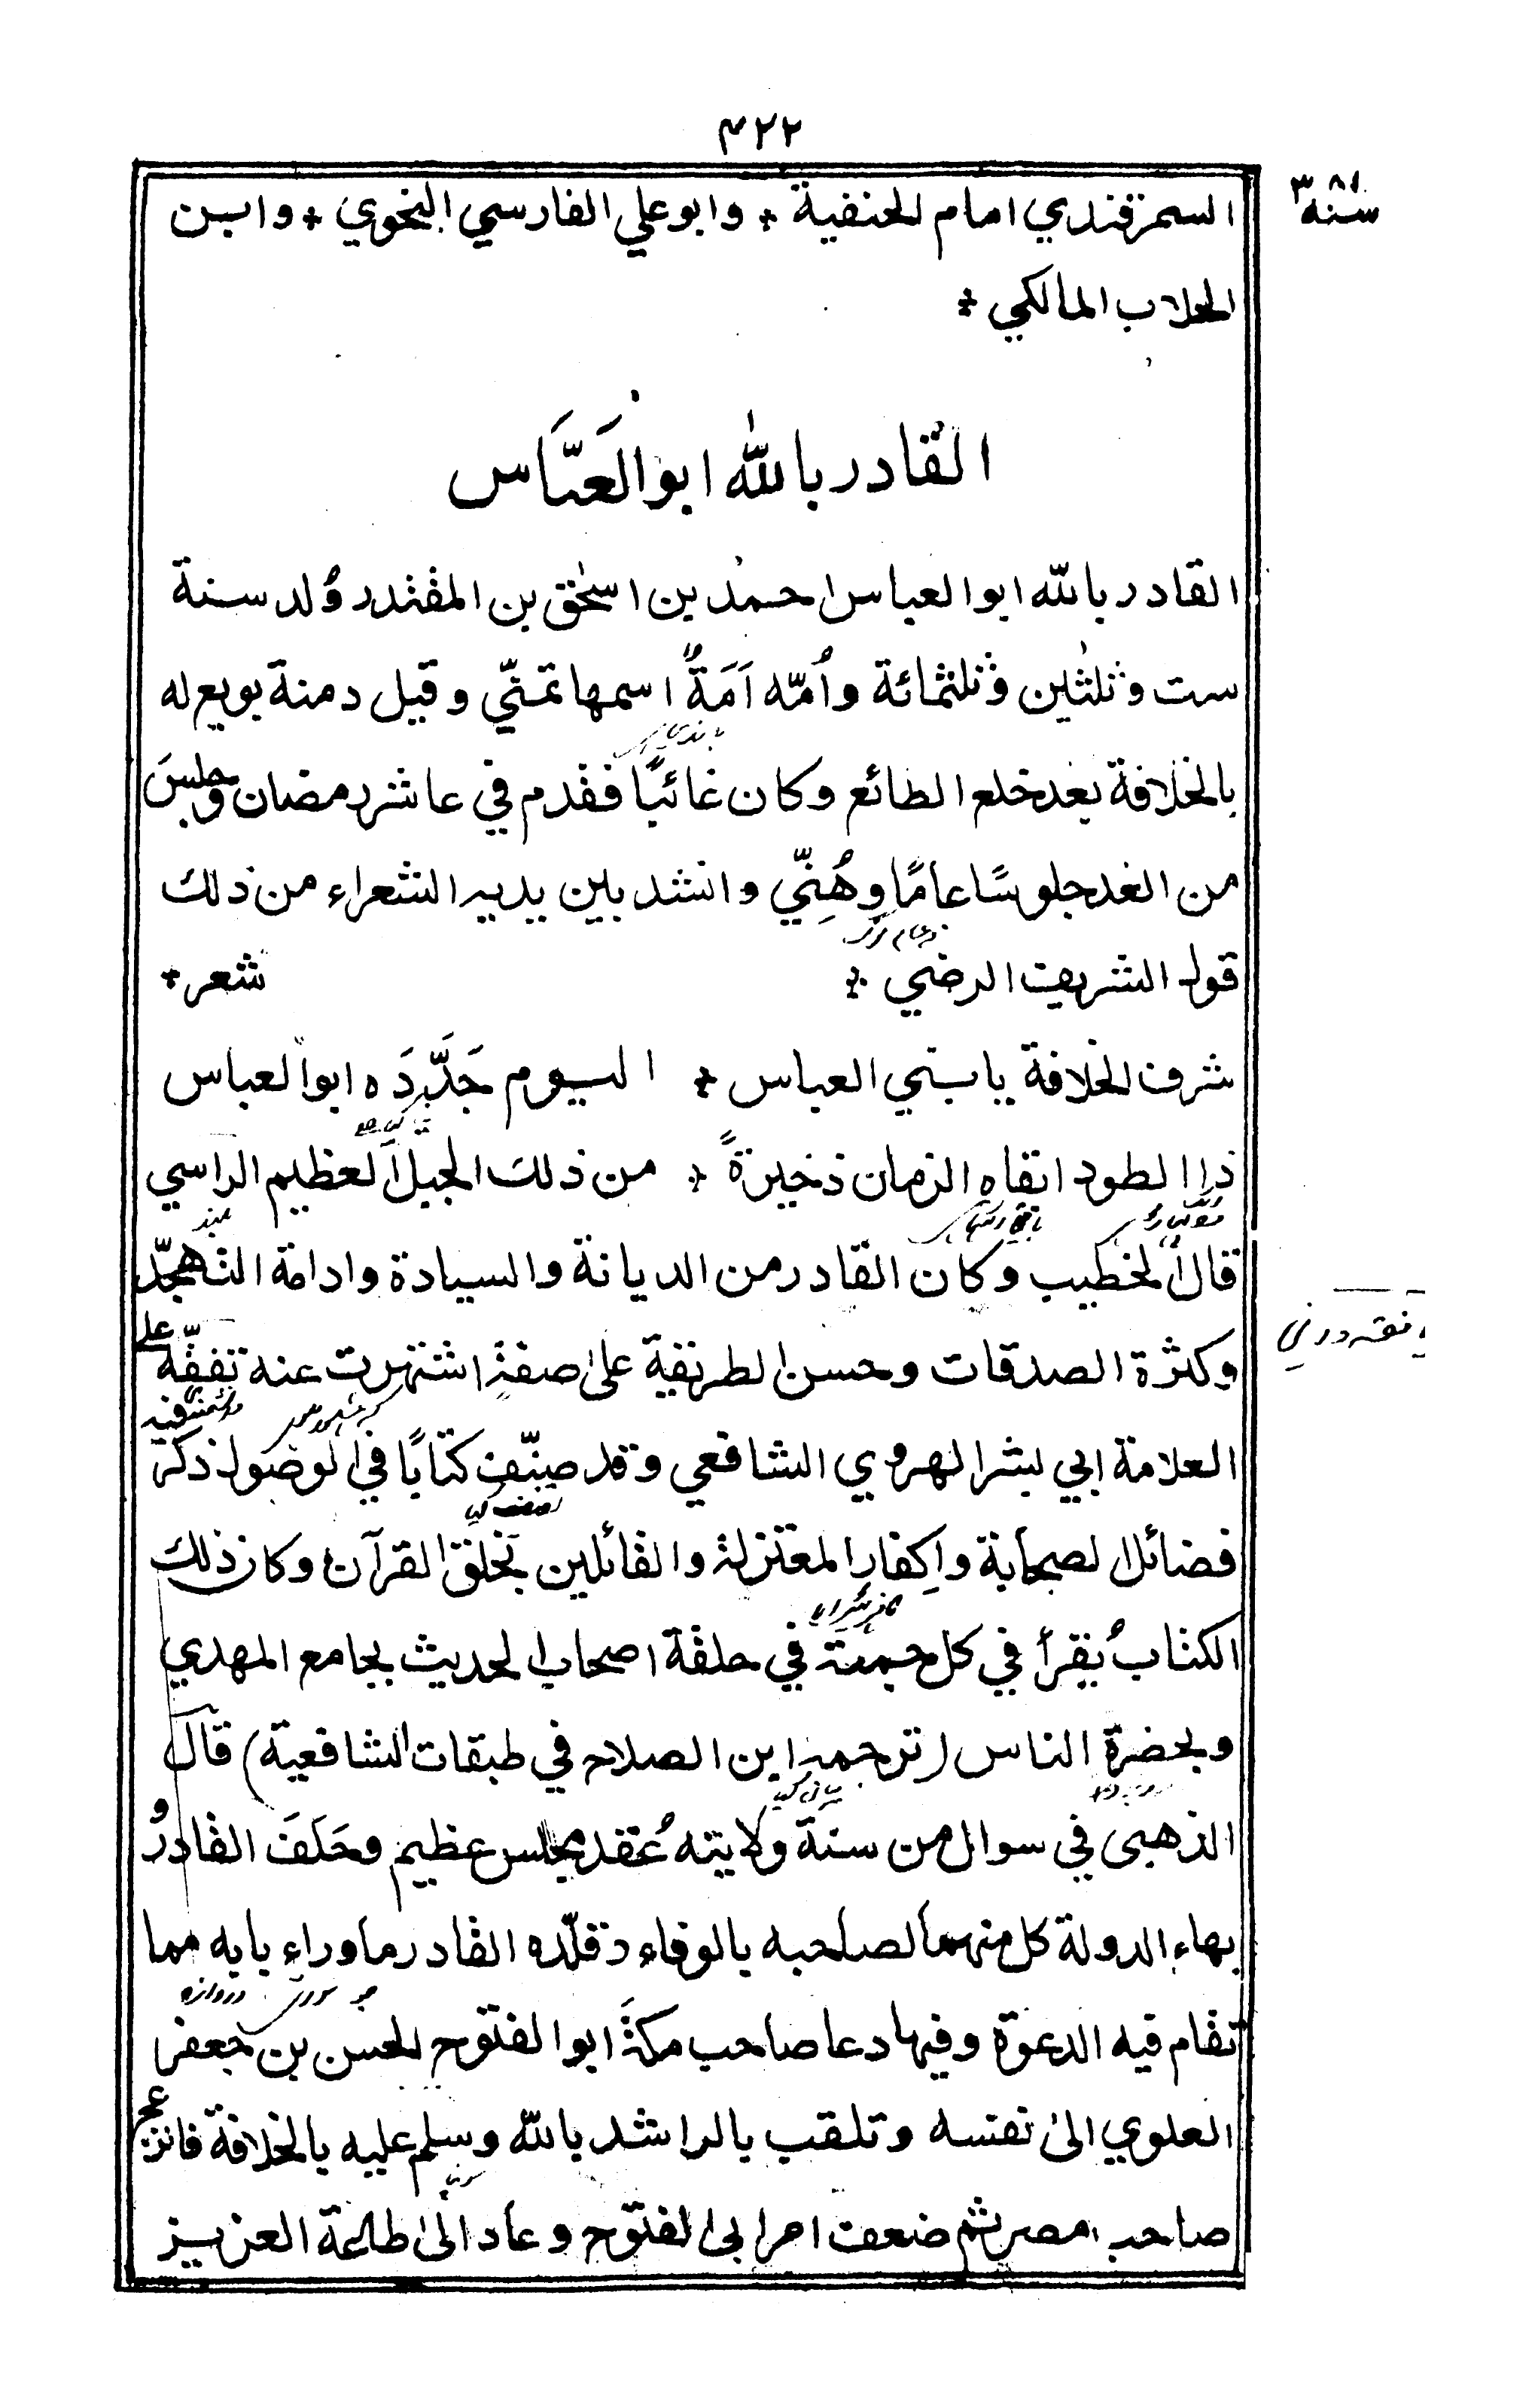 ٤٢٢
سنه ٣٨١
السمرقندي امام الحنفية * وابو علي الفارسي النحوي * وابن
الجلاب المالكي *
القادر بالله ابو العَبَّاس
القادر بالله ابو العباس احمد بن اسحٰق بن المقتدر وُلد سنة
ست وثلثين وثلثمائة واُمّه اَمَةٌ اسمها تمنّي وقيل دمنة بويع له
بالخلافة بعد خلع الطائع وكان غائبًا فقدم في عاشر رمضان وجلسَ
من الغد جلوسًا عامًا وهُنِّي وانشد بين يديه الشعراء من ذلك
قول الشريف الرضي * شعر *
شرف الخلافة يا بني العباس * اليوم جَدَّدَه ابو العباس
ذا الطود ابقاه الزمان ذخيرةً * من ذلك الجبل العظيم الراسي
قال الخطيب وكان القادر من الديانة والسيادة وادامة التهجّد
وكثرة الصدقات وحسن الطريقة على صفةٍ اشتهرت عنه تفقّه على
العلامة ابي بشر الهروي الشافعي وقد صنّف كتابًا في الوصول ذكر فيه
فضائل الصحابة واِكفار المعتزلة والقائلين بخلق القرآن وكان ذلك
الكتابُ يُقرأ في كل جمعة في حلقة اصحاب الحديث بجامع المهدي
وبحضرة الناس (ترجمه ابن الصلاح في طبقات الشافعية) قال
الذهبي في سوال من سنة ولايته عُقد مجلس عظيم وحَلَفَ القادرُ و
بهاء الدولة كل منهما لصاحبه بالوفاء وقلّده القادر ما وراء بابه مما
تقام فيه الدعوة وفيها دعا صاحب مكةَ ابو الفتوح الحسن بن جعفر
العلوي الى نفسه وتلقب بالراشد بالله وسلم عليه بالخلافة فانزعج
صاحب مصر ثم ضعف امر ابى الفتوح وعاد الى طاعة العزيز